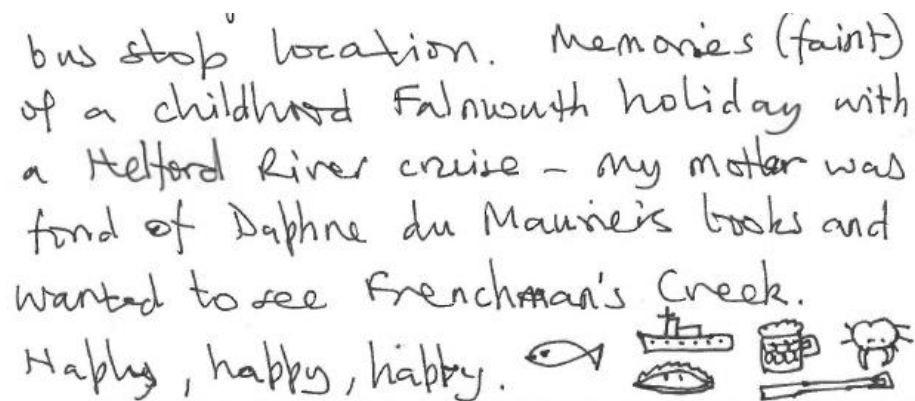 bus stop location. Memories (faint)
of a childhood Falmouth holiday with
a Helford River cruise - my mother was
fond of Daphne du Maurier's books and
wanted to see Frenchman's Creek.
Happy, happy, happy.